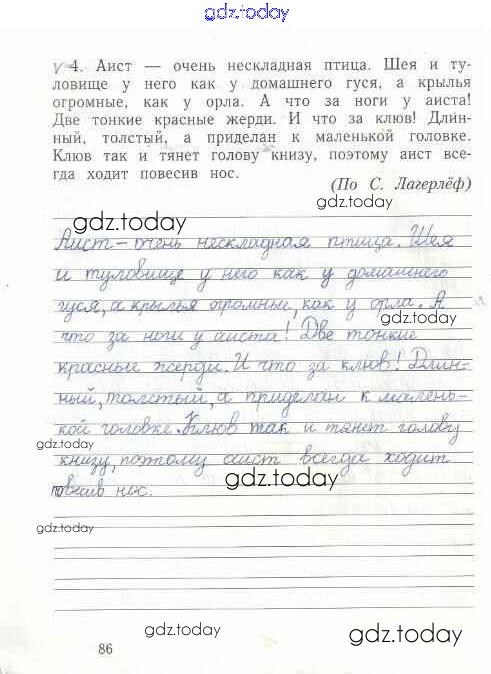 gdz.today
4. Аист — очень нескладная птица. Шея и ту-
ловище у него как у домашнего гуся, а крылья
огромные, как у орла. А что за ноги у аиста!
Две тонкие красные жерди. И что за клюв! Длин-
ный, толстый, а приделан к маленькой головке.
Клюв так и тянет голову книзу, поэтому аист все-
гда ходит повесив нос.
(По С. Лагерлёф)
gdz.today
gdz.today
Аист – очень нескладная птица. Шея
и туловище у него как у домашнего
гуся, а крылья огромные, как у орла. А
gdz.today
что за ноги у аиста! Две тонкие
gdz.today
красные жерди. И что за клюв! Длин-
ный, толстый, а приделан к малень-
кой головке. Клюв так и тянет голову
gdz.today
книзу, поэтому аист всегда ходит
gdz.today
повесив нос.
gdz.today
gdz.today
gdz.today
86